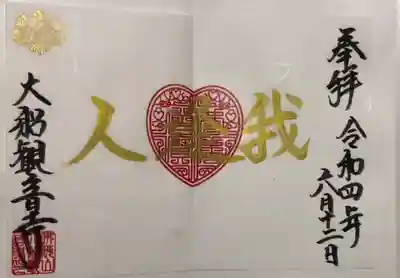 奉拝
令和四年
六月十二日
我逢人
大船観音寺